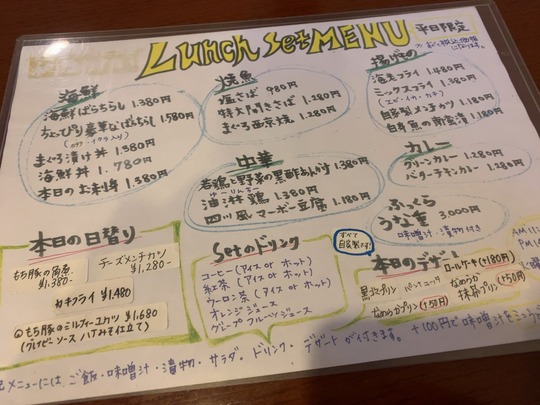 Lunch set MENU
平日限定
海鮮
海鮮ばらちらし 1.380円
ちょっぴり豪華なばらちらし 1.580円
まぐろ漬け丼 1.380円
海鮮丼 1.780円
本日のお刺身 1.380円
焼魚
塩さば 980円
特大トロさば 1.280円
まぐろ西京焼 1.280円
揚げもの
海老フライ 1.480円
ミックスフライ 1.380円
(エビ・イカ・カキ)
自家製メンチカツ 1.180円
中華
若鶏と野菜の黒酢あんかけ 1.380円
油淋鶏 1.380円
四川風マーボー豆腐 1.180円
カレー
グリーンカレー 1.280円
バターチキンカレー 1.280円
ふっくら
うな重 3,000円
味噌汁・漬物付き
本日の日替り
もち豚の角煮
¥1.380-
チーズメンチカツ
¥1,280-
カキフライ ¥1.480
もち豚のミルフィーユカツ ¥1,680
Setのドリンク
コーヒー (アイス or ホット)
紅茶 (アイス or ホット)
ウーロン茶 (アイス or ホット)
オレンジジュース
グレープフルーツジュース
すべて
自家製です!
本日のデザート
ロールケーキ(+180円)
パンナコッタ
なめらか
抹茶プリン (+50円)
なめらかプリン (+50円)
メニューには ご飯・味噌汁・漬物・サラダ・ドリンク・デザートが付きます。
+100円で味噌汁を